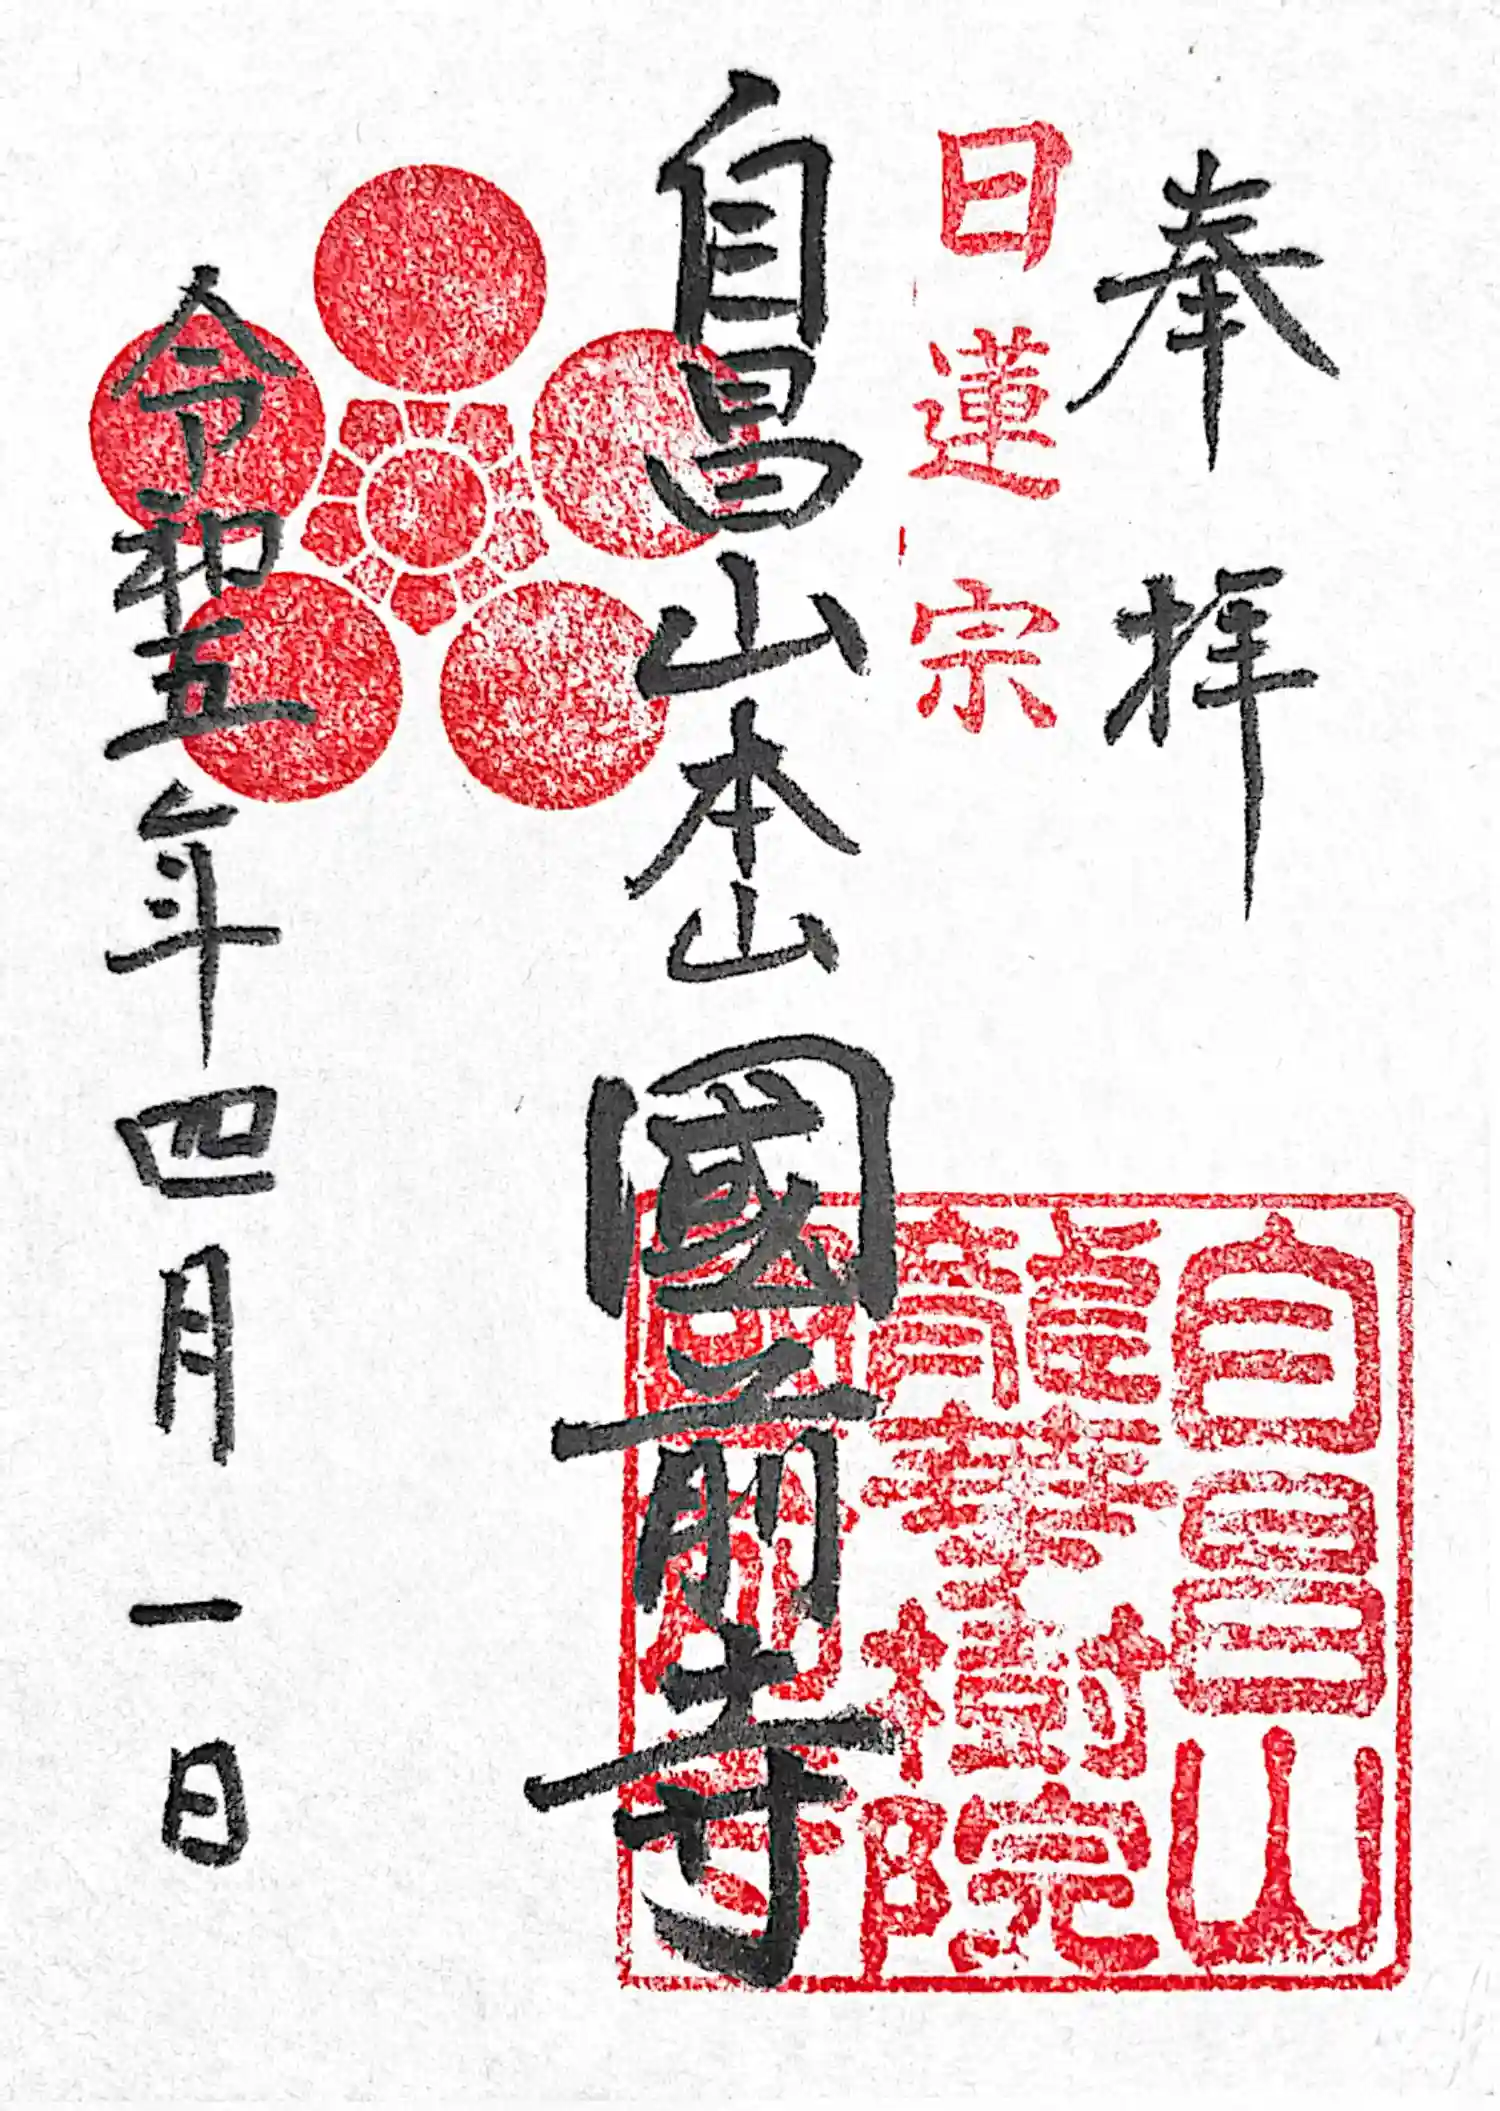 奉拝
日蓮宗
自昌山本山國前寺
令和五年四月一日
自昌山
龍華樹院
國前寺